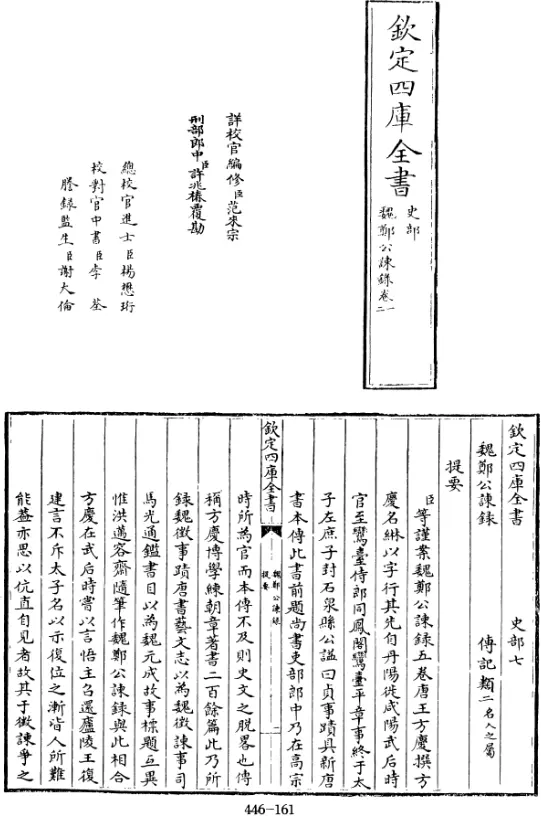 欽定四庫全書
史部
魏鄭公諫錄卷一二
詳校官編修臣范來宗
刑部郎中臣許兆椿覆勘
總校官進士臣楊懋珩
校對官中書臣李荃
謄錄監生臣謝大倫
欽定四庫全書
史部七
魏鄭公諫錄
傳記類二名人之屬
提要
臣等謹案魏鄭公諫錄五卷唐王方慶撰方
慶名綝以字行其先自丹陽徙咸陽武后時
官至鸞臺侍郎同鳳閣鸞臺平章事終于太
子左庶子封石泉縣公諡曰貞事蹟具新唐
書本傳此書前題尚書吏部郎中乃在高宗
欽定四庫全書
魏鄭公諫錄
提要
一
時所為官而本傳不及則史文之脫畧也傳
稱方慶博學練朝章著書二百餘篇此乃所
錄魏徵事蹟唐書藝文志以為魏徵諫事司
馬光通鑑書目以為魏元成故事標題互異
惟洪邁容齋隨筆作魏鄭公諫錄與此相合
方慶在武后時嘗以言悟主召還廬陵王復
建言不斥太子名以示復位之漸皆人所難
能葢亦思以伉直自見者故其于徵諫爭之
446-161